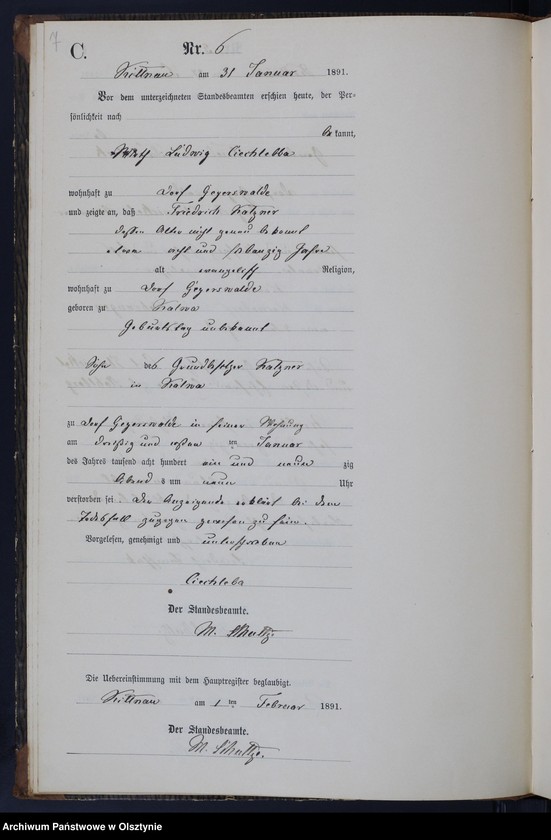 7
C.
Nr. 6
Kittnau am 31 Januar 1891.
Vor dem unterzeichneten Standesbeamten erschien heute, der Per=
sönlichkeit nach
be kannt,
Ludwig Ciechlebba
wohnhaft zu Dorf Geyerswalde
und zeigte an, daß Friedrich Katzner
dessen Alter nicht genau bekannt
etwa acht und siebenzig Jahre
alt evangelisch Religion,
wohnhaft zu Dorf Geyerswalde
geboren zu
Geburtstag unbekannt
Sohn des Grundbesitzer Katzner
in
zu Dorf Geyerswalde in seiner Wohnung
am dreißig und ersten ten Januar
des Jahres tausend acht hundert ein und neun zig
Abend s um neun Uhr
verstorben sei Der Anzeigende erklärt bei dem
Todesfall zugegen gewesen zu sein.
Vorgelesen, genehmigt und unterschrieben
Ciechleba
Der Standesbeamte.
M. Schultz
Die Uebereinstimmung mit dem Hauptregister beglaubigt.
Kittnau am 1 ten Februar 1891.
Der Standesbeamte.
M. Schultz.
Archiwum Państwowe w Olsztynie